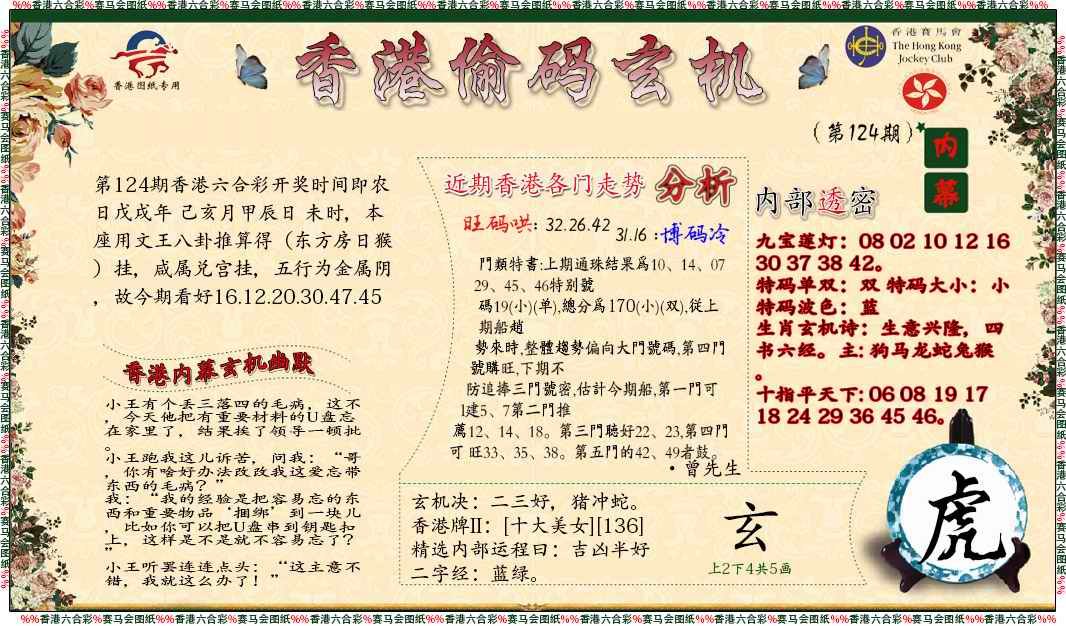 %%香港六合彩%赛马会图纸%%香港六合彩%赛马会图纸%%香港六合彩%赛马会图纸%%香港六合彩%赛马会图纸%%香港六合彩%赛马会图纸%%香港六合彩%赛马会图纸%%香港六合彩%%
香港图纸专用
香港偷码玄机
香港賽馬會
The Hong Kong
Jockey Club
(第124期)
内
幕
第124期香港六合彩开奖时间即农
日戊戌年 己亥月甲辰日 未时，本
座用文王八卦推算得（东方房日猴
）挂，咸属兑宫挂，五行为金属阴
，故今期看好16.12.20.30.47.45
香港内幕玄机幽默
小王有个丢三落四的毛病，这不
，今天他把有重要材料的U盘忘
在家里了，结果挨了领导一顿批
。
小王跑我这儿诉苦，问我：“哥
，你有啥好办法改改我这爱忘带
东西的毛病？”
我：“我的经验是把容易忘的东
西和重要物品‘捆绑’到一块儿
，比如你可以把U盘串到钥匙扣
上，这样是不是就不容易忘了？
”
小王听罢连连点头：“这主意不
错，我就这么办了！”
近期香港各门走势 分析
旺码哄: 32.26.42
31.16 :博码冷
門類特書:上期通珠結果爲10、14、07
29、45、46特别號
碼19(小)(单),總分爲170(小)(双),從上
期船趙
勢來時,整體趨勢偏向大門號碼,第四門
號購旺,下期不
防追捧三門號密,估計今期船,第一門可
1建5、7第二門推
薦12、14、18。第三門聴好22、23,第四門
可 旺33、35、38。第五門的42、49者鼓。
·曾先生
玄机决：二三好，猪冲蛇。
香港牌II：[十大美女][136]
精选内部运程曰：吉凶半好
二字经：蓝绿。
玄
上2下4共5画
内部透密
九宝莲灯：08 02 10 12 16
30 37 38 42。
特码单双：双 特码大小：小
特码波色：蓝
生肖玄机诗：生意兴隆，四
书六经。主: 狗马龙蛇兔猴
。
十指平天下: 06 08 19 17
18 24 29 36 45 46。
虎
%%香港六合彩%赛马会图纸%%香港六合彩%赛马会图纸%%香港六合彩%赛马会图纸%%香港六合彩%赛马会图纸%%香港六合彩%赛马会图纸%%香港六合彩%赛马会图纸%%香港六合彩%%